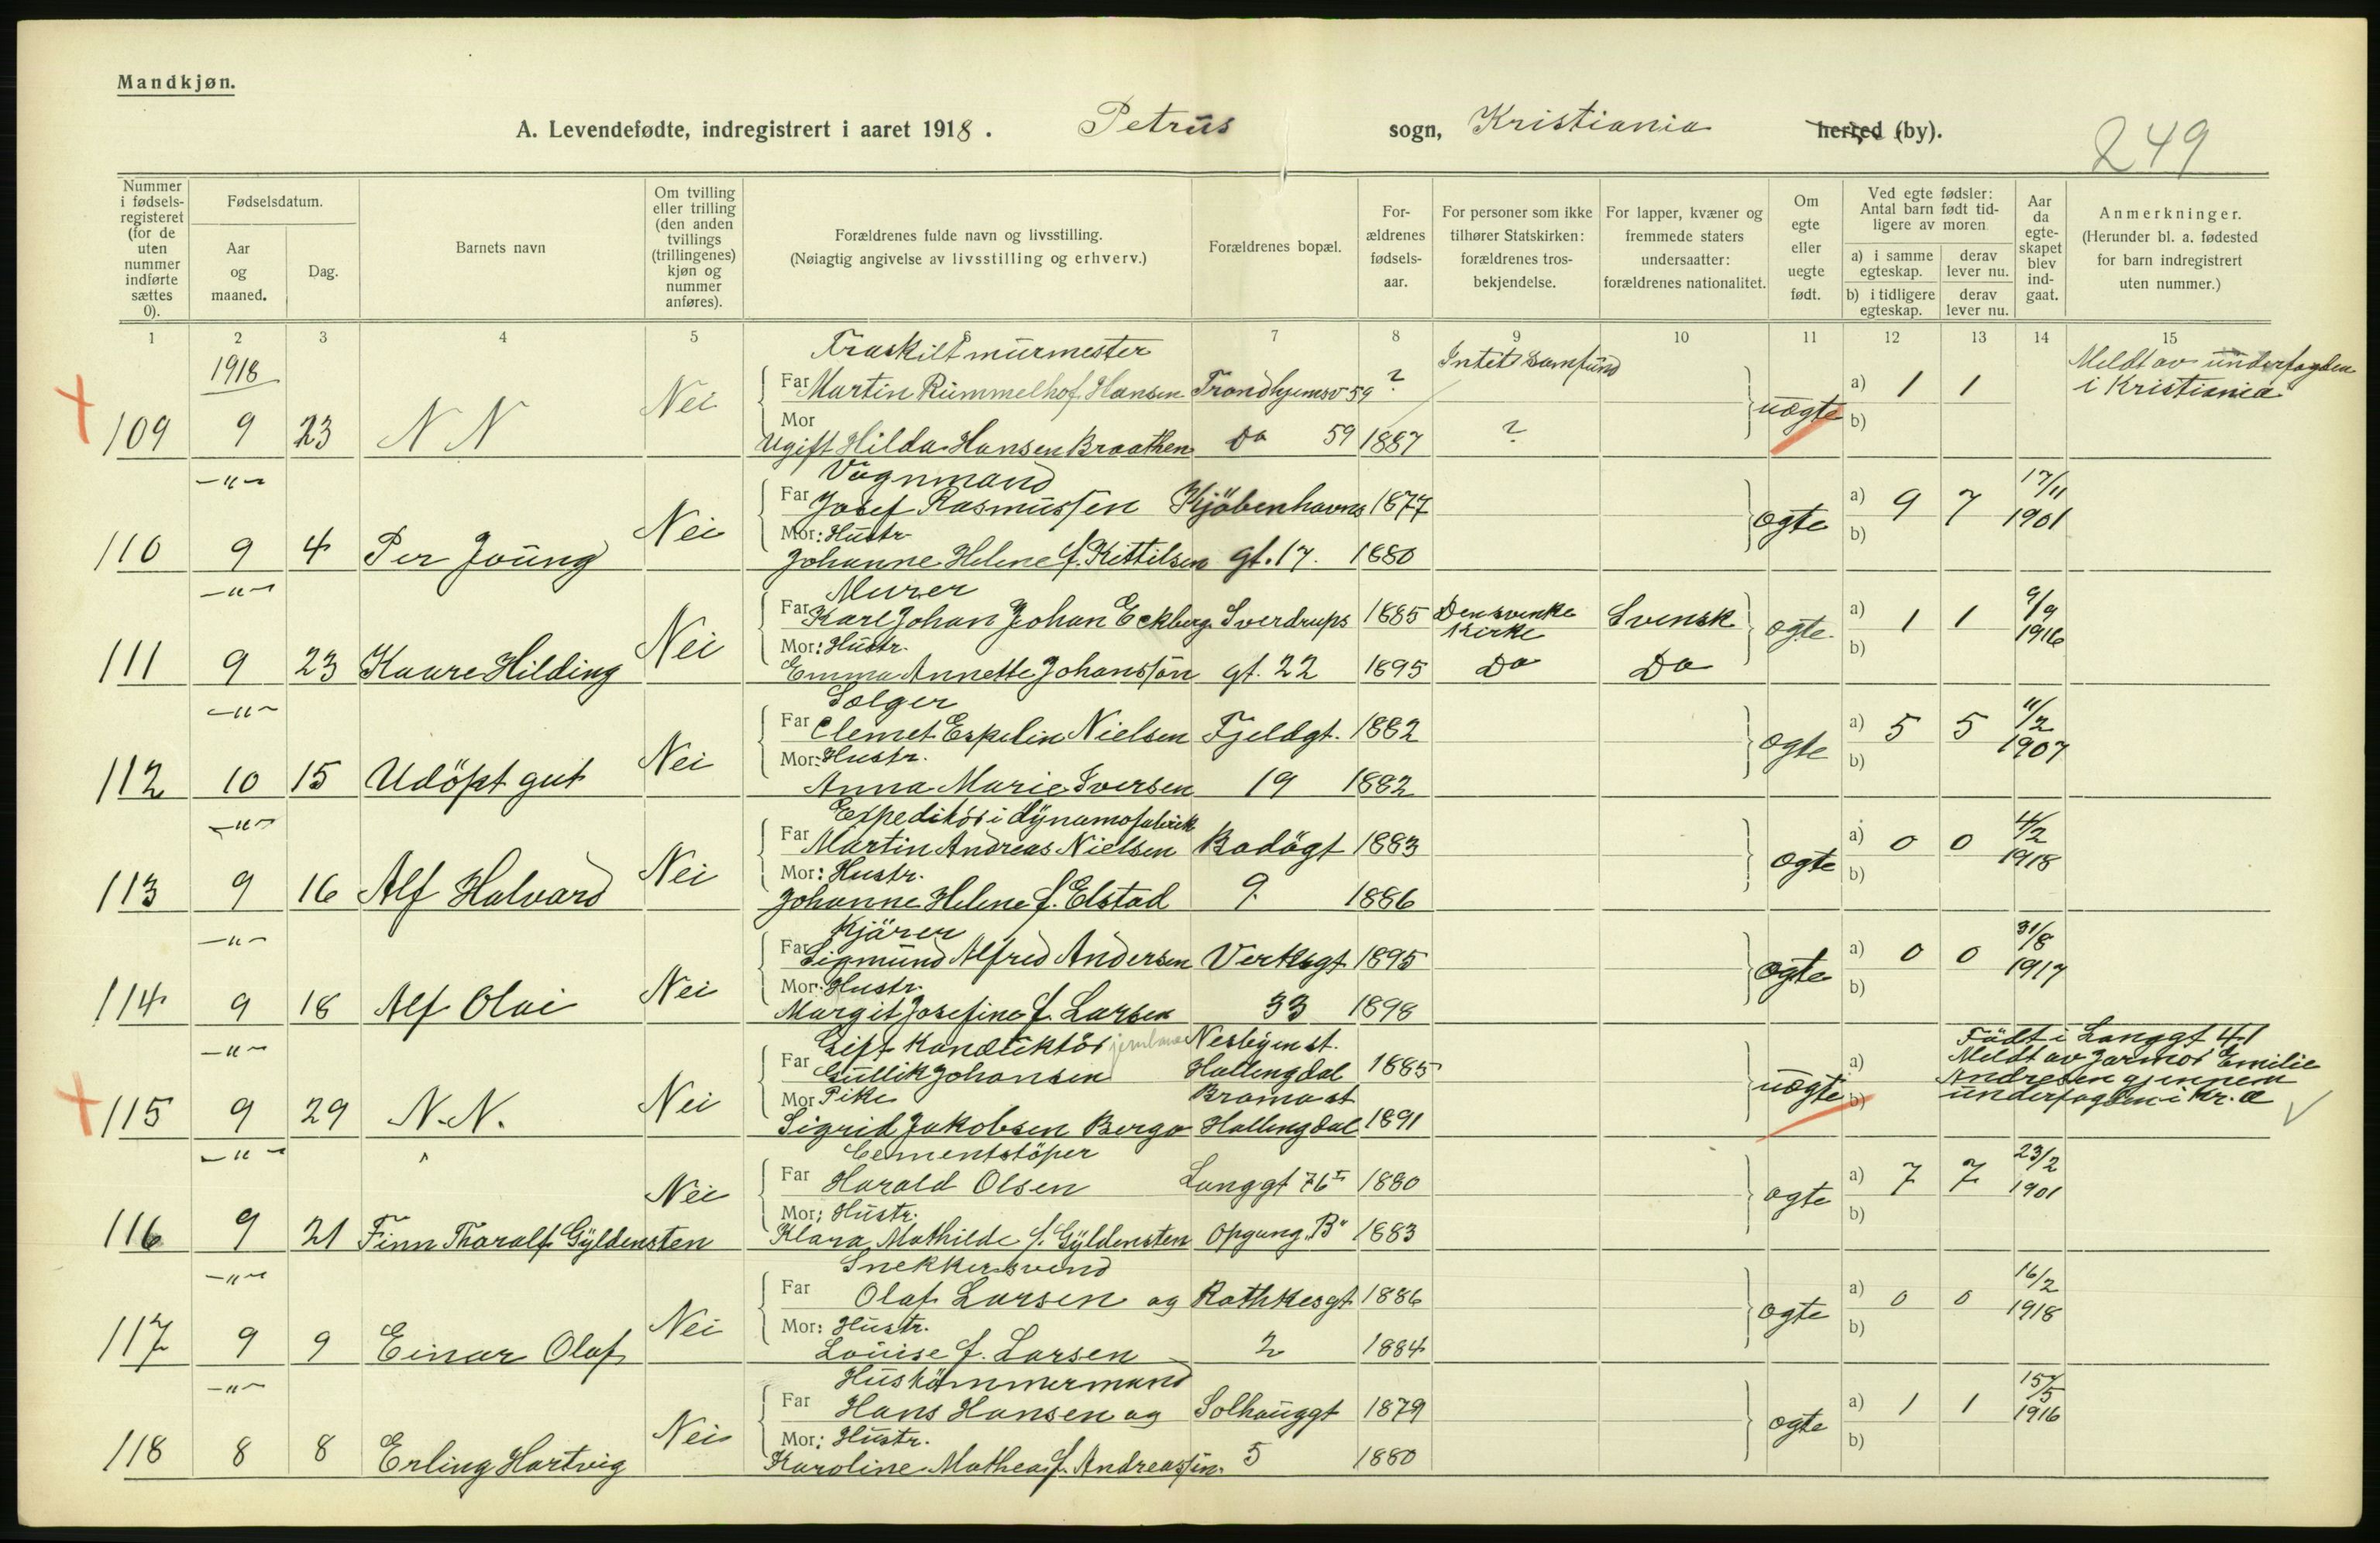 Mandkjøn.
A. Levendefødte, indregistrert i aaret 1918. Petrus sogn, Kristiania herred (by).
249
Nummer i fødselsregisteret (for de uten nummer indførte sættes 0).
Fødselsdatum.
Aar og maaned.
Dag.
Barnets navn
Om tvilling eller trilling (den anden tvillings (trillingenes) kjøn og nummer anføres).
Forældrenes fulde navn og livsstilling.
(Nøiagtig angivelse av livsstilling og erhverv.)
Forældrenes bopæl.
Forældrenes fødselsaar.
For personer som ikke tilhører Statskirken: forældrenes trosbekjendelse.
For lapper, kvæner og fremmede staters undersaatter: forældrenes nationalitet.
Om egte eller uegte født.
Ved egte fødsler: Antal barn født tidligere av moren
a) i samme egteskap.
derav lever nu.
b) i tidligere egteskap.
derav lever nu.
Aar da egteskapet blev indgaat.
Anmerkninger.
(Herunder bl. a. fødested for barn indregistrert uten nummer.)
1 2 3 4 5 6 7 8 9 10 11 12 13 14 15
1918
Fraskilt murmester
Intet samfund
Meldt av underfogden
Far Martin Rummelhof Hansen Trondhjemsv 59 ?
a) 1 1
i Kristiania
109 9 23 N N Nei
Mor Ugift Hilda Hansen Braathen Do 59 1887 ?
uegte b)
-"-
Vognmand
Far Josef Rasmussen Kjöbenhavns 1877
egte a) 9 7 17/11 1901
Mor: Hustr.
110 9 4 Per Joung Nei Johanne Helene f. Kittilsen gt. 17. 1880 b)
-"-
Murer
Far Karl Johan Johan Eckberg Sverdrups 1885 Den svenke Kirke Svensk
egte a) 1 1 9/9 1916
Mor: Hustr.
111 9 23 Kaare Hilding Nei Emma Annette Johansson gt. 22 1895 Do Do b)
-"-
Selger
Far Clemet Espelin Nielsen Fjeldgt. 1882
egte a) 5 5 11/2 1907
Mor: Hustr.
112 10 15 Udöpt gut Nei Anna Marie Iversen 19 1882 b)
-"-
Expeditör i dynamofabrik
Far Martin Andreas Nielsen Bodögt 1883
egte a) 0 0 4/2 1918
Mor: Hustr.
113 9 16 Alf Halvard Nei Johanne Helene f. Elstad 9. 1886 b)
-"-
Kjörer
Far Sigmund Alfred Andersen Verksgt 1895
egte a) 0 0 31/8 1917
Mor: Hustr.
114 9 18 Alf Olai Nei Margit Josefine f. Larsen 33 1898 b)
-"-
Gift Konduktör Nesbyen st.
Födt i Langgt 41
Far Gullik Johansen Hallingdal 1885
uegte a) Meldt av Jarmor Emilie
Mor Pike Bromo st
Andresen gjennem
115 9 29 N.N. Nei Sigrid Jakobsen Berge Hallingdal 1891 b)
underfogden i Kr.a
-"-
Cementstöper
Far Harald Olsen Langgt 76 I 1880
egte a) 7 7 23/2 1901
Mor: Hustr.
116 9 21 Finn Tharalf Gyldensten Nei Klara Mathilde f. Gyldensten Opgang "B" 1883 b)
-"-
Snekkersvend
Far Olaf Larsen og Rathkesgt 1886
egte a) 0 0 16/2 1918
Mor: Hustr.
117 9 9 Einar Olaf Nei Louise f. Larsen 2 1884 b)
-"-
Hustömmermand
Far Hans Hansen og Solhauggt 1879
egte a) 1 1 15/5 1916
Mor: Hustr.
118 8 8 Erling Hartvig Nei Karoline Mathea f. Andreassen. 5 1880 b)